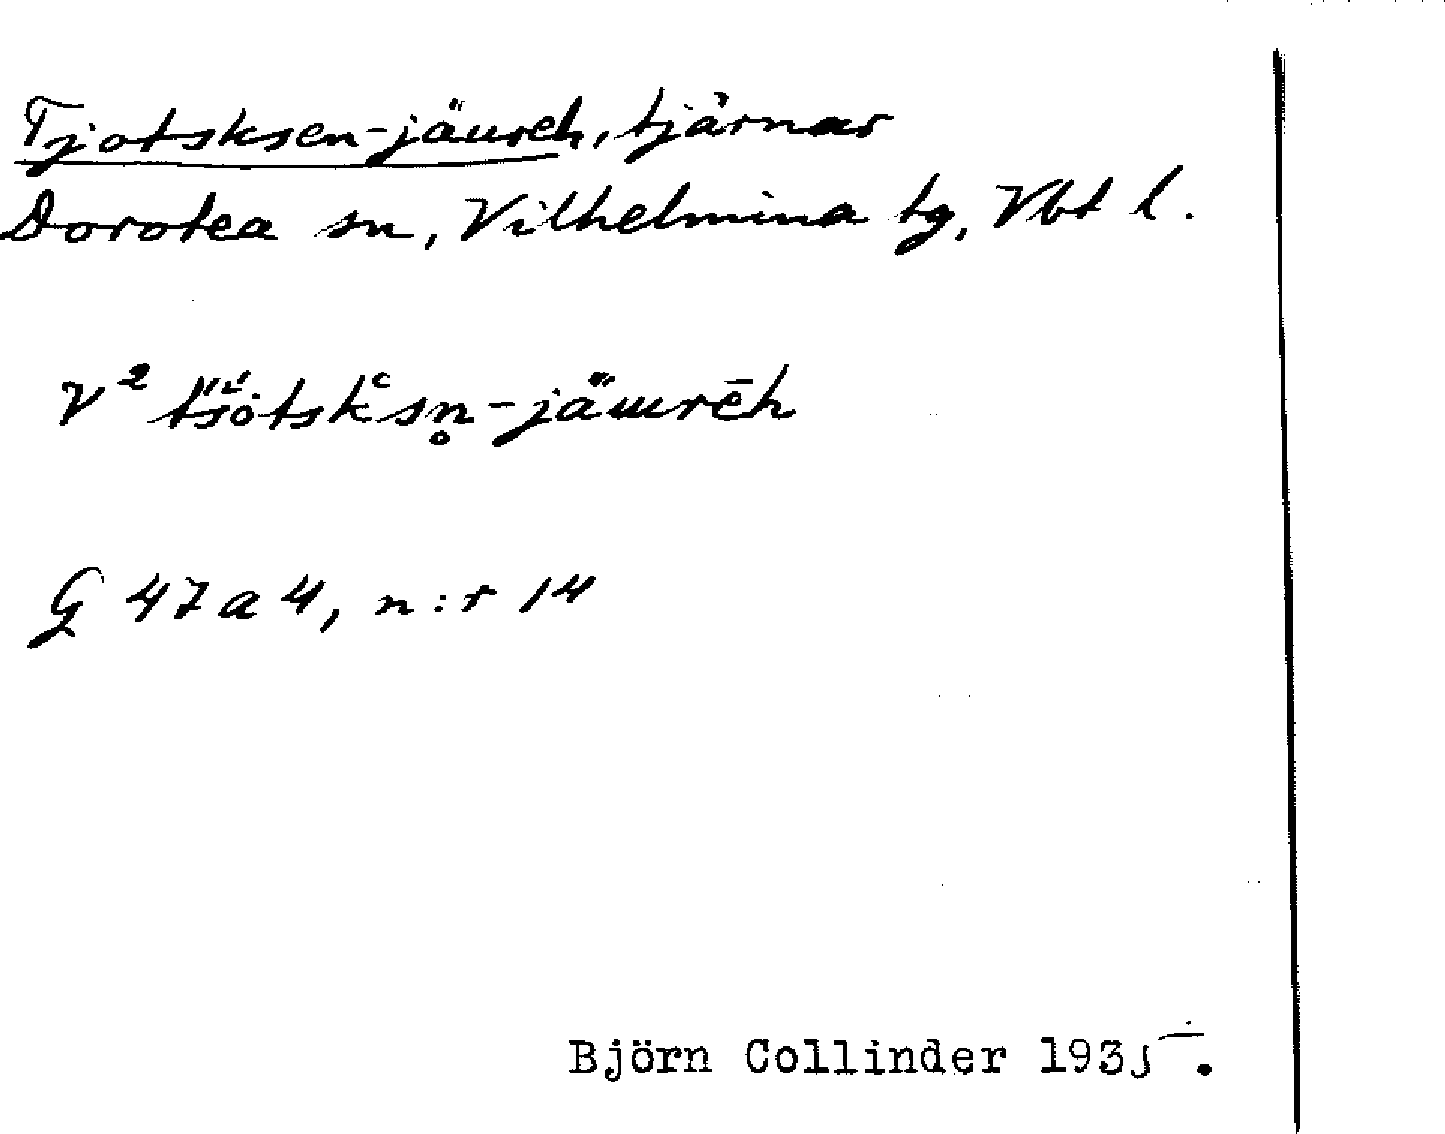 Tjotsksen-jäureh, tjärnar
Dorotea sn, Vilhelmina tg, Vbt l.
V² tšòtskʿsn̥-jäwrēh
G 47 a 4, n:r 14
Björn Collinder 1935.